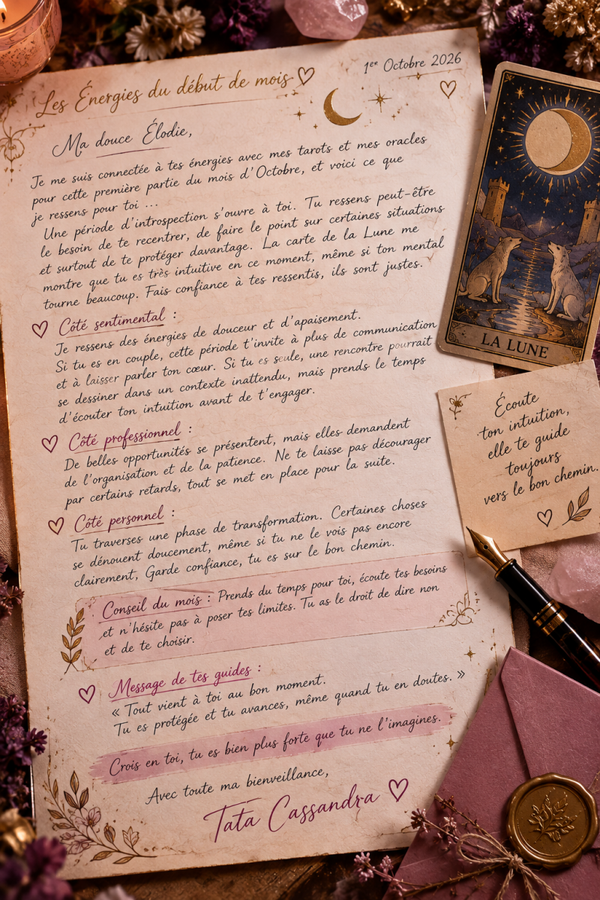 Les Énergies du début de mois
1er Octobre 2026
Ma douce Élodie,
Je me suis connectée à tes énergies avec mes tarots et mes oracles
pour cette première partie du mois d'Octobre, et voici ce que
je ressens pour toi ...
Une période d'introspection s'ouvre à toi. Tu ressens peut-être
le besoin de te recentrer, de faire le point sur certaines situations
et surtout de te protéger davantage. La carte de la Lune me
montre que tu es très intuitive en ce moment, même si ton mental
tourne beaucoup. Fais confiance à tes ressentis, ils sont justes.
Côté sentimental :
Je ressens des énergies de douceur et d'apaisement.
Si tu es en couple, cette période t'invite à plus de communication
et à laisser parler ton cœur. Si tu es seule, une rencontre pourrait
se dessiner dans un contexte inattendu, mais prends le temps
d'écouter ton intuition avant de t'engager.
Côté professionnel :
De belles opportunités se présentent, mais elles demandent
de l'organisation et de la patience. Ne te laisse pas décourager
par certains retards, tout se met en place pour la suite.
Côté personnel :
Tu traverses une phase de transformation. Certaines choses
se dénouent doucement, même si tu ne le vois pas encore
clairement, Garde confiance, tu es sur le bon chemin.
Conseil du mois : Prends du temps pour toi, écoute tes besoins
et n'hésite pas à poser tes limites. Tu as le droit de dire non
et de te choisir.
Message de tes guides :
« Tout vient à toi au bon moment.
Tu es protégée et tu avances, même quand tu en doutes. »
Crois en toi, tu es bien plus forte que tu ne l'imagines.
Avec toute ma bienveillance,
Tata Cassandra
LA LUNE
Écoute
ton intuition,
elle te guide
toujours
vers le bon chemin.